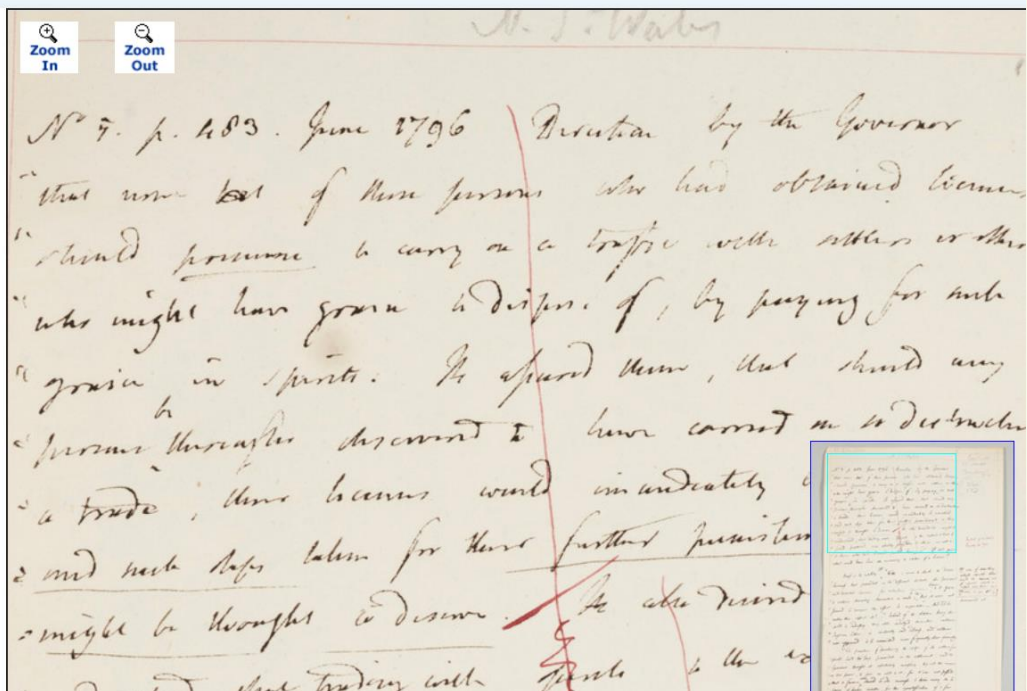 N. S. Wales
Zoom In
Zoom Out
No 7. p. 483. June 1796 Direction by the Governor
that none of those persons who had obtained licences
should presume to carry on a traffic with settlers or others
who might have grain to dispose of, by paying for such
grain in spirits. He assured them, that should any
be
persons thereafter discovered to have carried on so destructive
a trade, their licences would immediately
and such steps taken for their further punishm
might be thought to deserve. He also desired
that trading with spirits to the